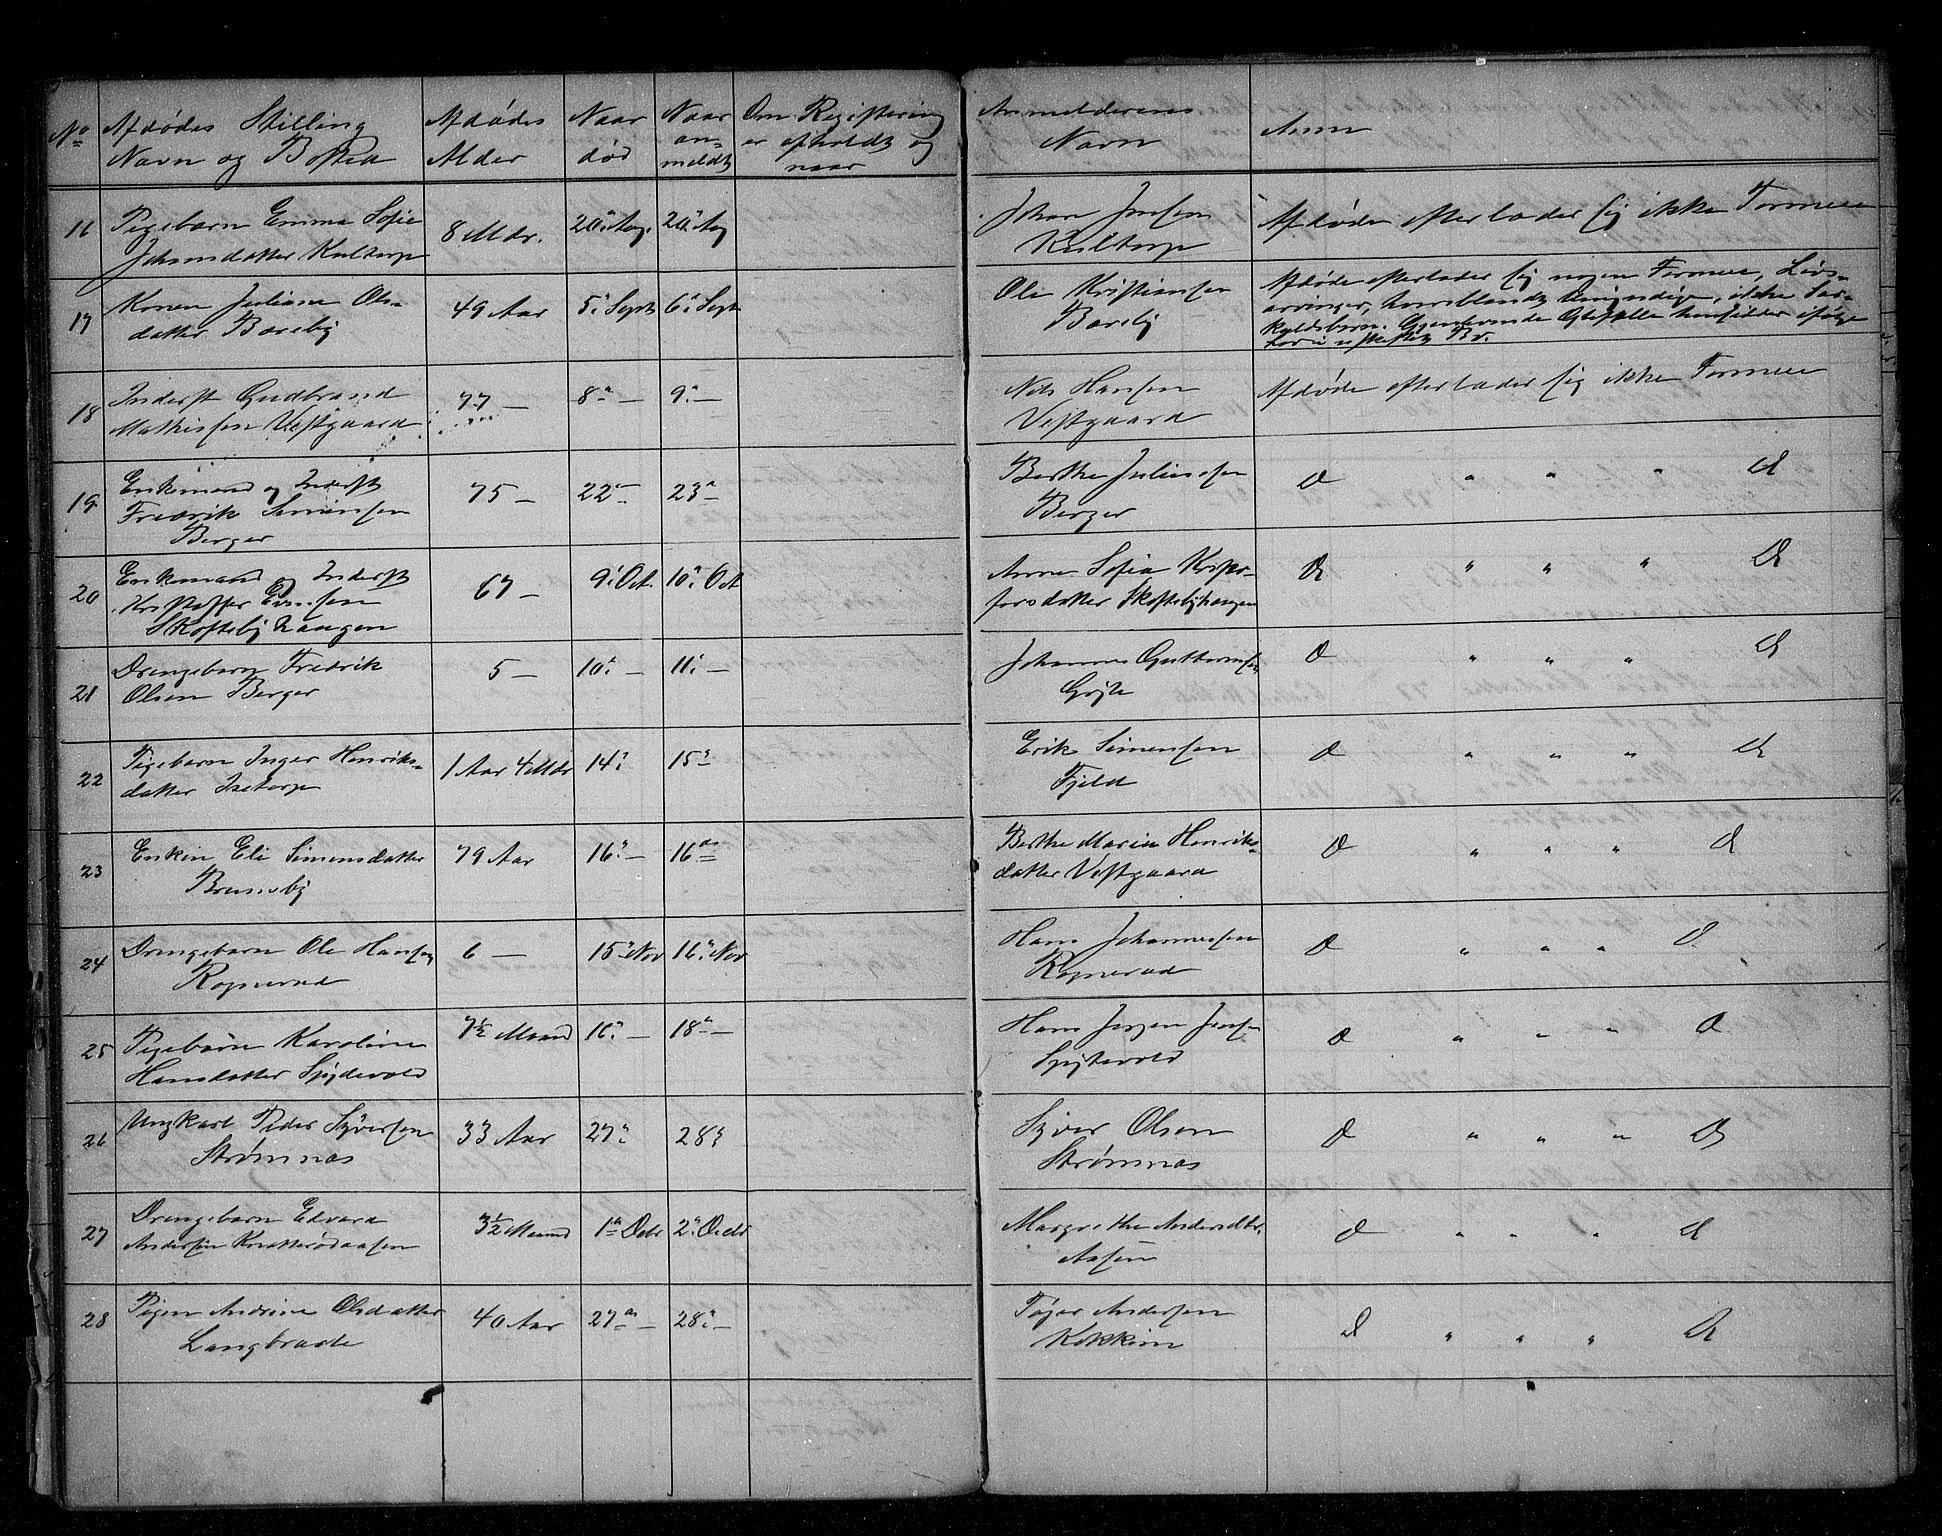 No
Afdødes Stilling
Navn og Bosted
Afdødes
Alder
Naar
død
Naar
an-
meldt
Om Registrering
er afholdt og
naar
Anmelderens
Navn
Anm
16
Pigebarn Emma Sofie
Johansdatter Kultorp
8 Mdr.
20. Aug.
20. Aug
Johan Jensen
Kultorp
Afdøde efterlader sig ikke Formue
17
Konen Juliane Ols-
datter Bareby
49 Aar
5. Sept
6. Sept
Ole Kristiansen
Bareby
Afdøde efterlader sig nogen Formue, Livs-
arvinger, hvoriblandt Umyndige, ikke Sær-
kuldsbørn. Gjenlevende Ægtefælle hensidder ifølge
Lov i uskiftet Bo.
18
Inderst Gudbrand
Mathissen Vestgaard
77 —
8 —
9 —
Nils Hansen
Vestgaard
Afdøde efterlader sig ikke Formue
19
Enkemand og Inderst
Fredrik Simensen
Berger
75 —
22 —
23 —
Berthe Juliussen
Berger
D " " " D
20
Enkemand og Inderst
Kristoffer Evensen
Skoftebyhaugen
67 —
9. Oct.
10. Oct
Anne Sofie Kristo-
fersdatter Skoftebyhaugen
D " " " D
21
Drengebarn Fredrik
Olsen Berger
5 —
10. —
11. —
Johannes Guttormsen
D " " " D
22
Pigebarn Inger Henriks-
datter
1 Aar 4 Mdr
14.
15.
Erik Simensen
Fjeld
D " " " D
23
Enken Eli Simensdatter
Brunsby
79 Aar
16. —
16 —
Berthe Marie Henriks-
datter Vestgaard
D " " " D
24
Drengebarn Ole Hansen
Rognerud
6 —
15. Nov
16. Nov
Hans Johannessen
Rognerud
D " " " D
25
Pigebarn Karoline
Hansdatter Spydevold
7½ Maaned
16. —
18. —
Hans Jørgen Jensen
Spydevold
D " " " D
26
Ungkarl Peder Syversen
Strømnæs
33 Aar
27.
28.
Syver Olsen
Strømnæs
D " " " D
27
Drengebarn Edvard
Andersen Knatterødaasen
3½ Maaned
1. Decbr
2. Decbr
Margrethe Andersdtr.
Aasen
D " " " D
28
Pigen Andrine Olsdatter
Langbraate
40 Aar
27. —
28. —
Andersen
Kokkim
D " " " D